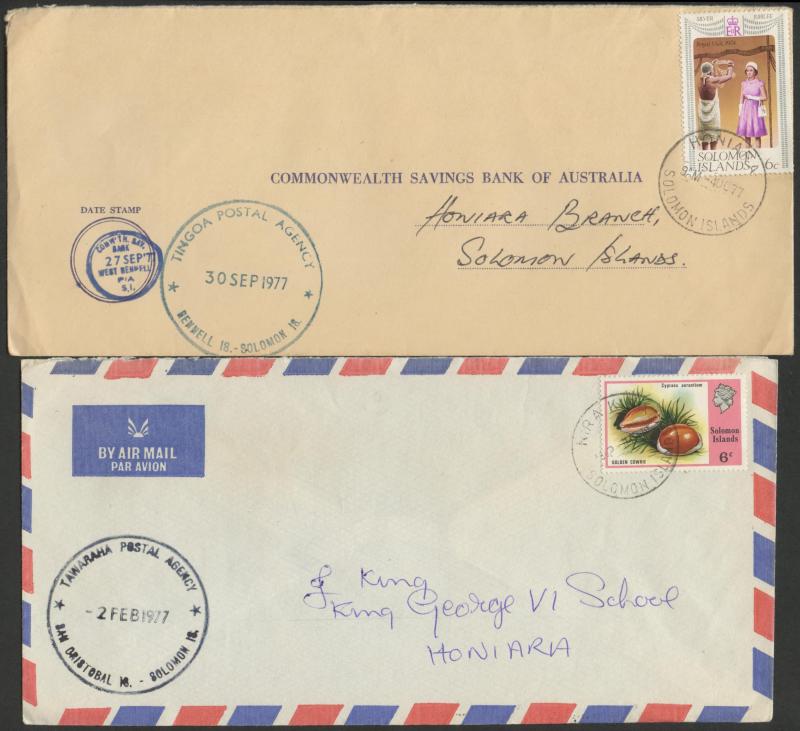 SILVER JUBILEE
E II R
Royal Visit 1974
SOLOMON
ISLANDS 6c
HONIARA
SOLOMON ISLANDS
COMMONWEALTH SAVINGS BANK OF AUSTRALIA
HONIARA BRANCH,
SOLOMON ISLANDS.
DATE STAMP
COMW'TH. SAV.
BANK
27 SEP'7
WEST RENNELL
P/A
S.I.
TINGOA POSTAL AGENCY
30 SEP 1977
RENNELL IS.-SOLOMON IS.
BY AIR MAIL
PAR AVION
Cypraea aurantium
Solomon
Islands
6c
GOLDEN COWRIE
KIRA KI
SOLOMON ISLA
TAWARAHA POSTAL AGENCY
-2 FEB 1977
SAN CRISTOBAL IS. - SOLOMON IS.
King
King George VI School
HONIARA